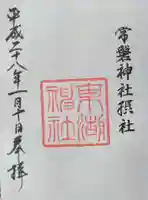 常磐神社摂社
東湖神社
平成二十八年一月十日奉拝